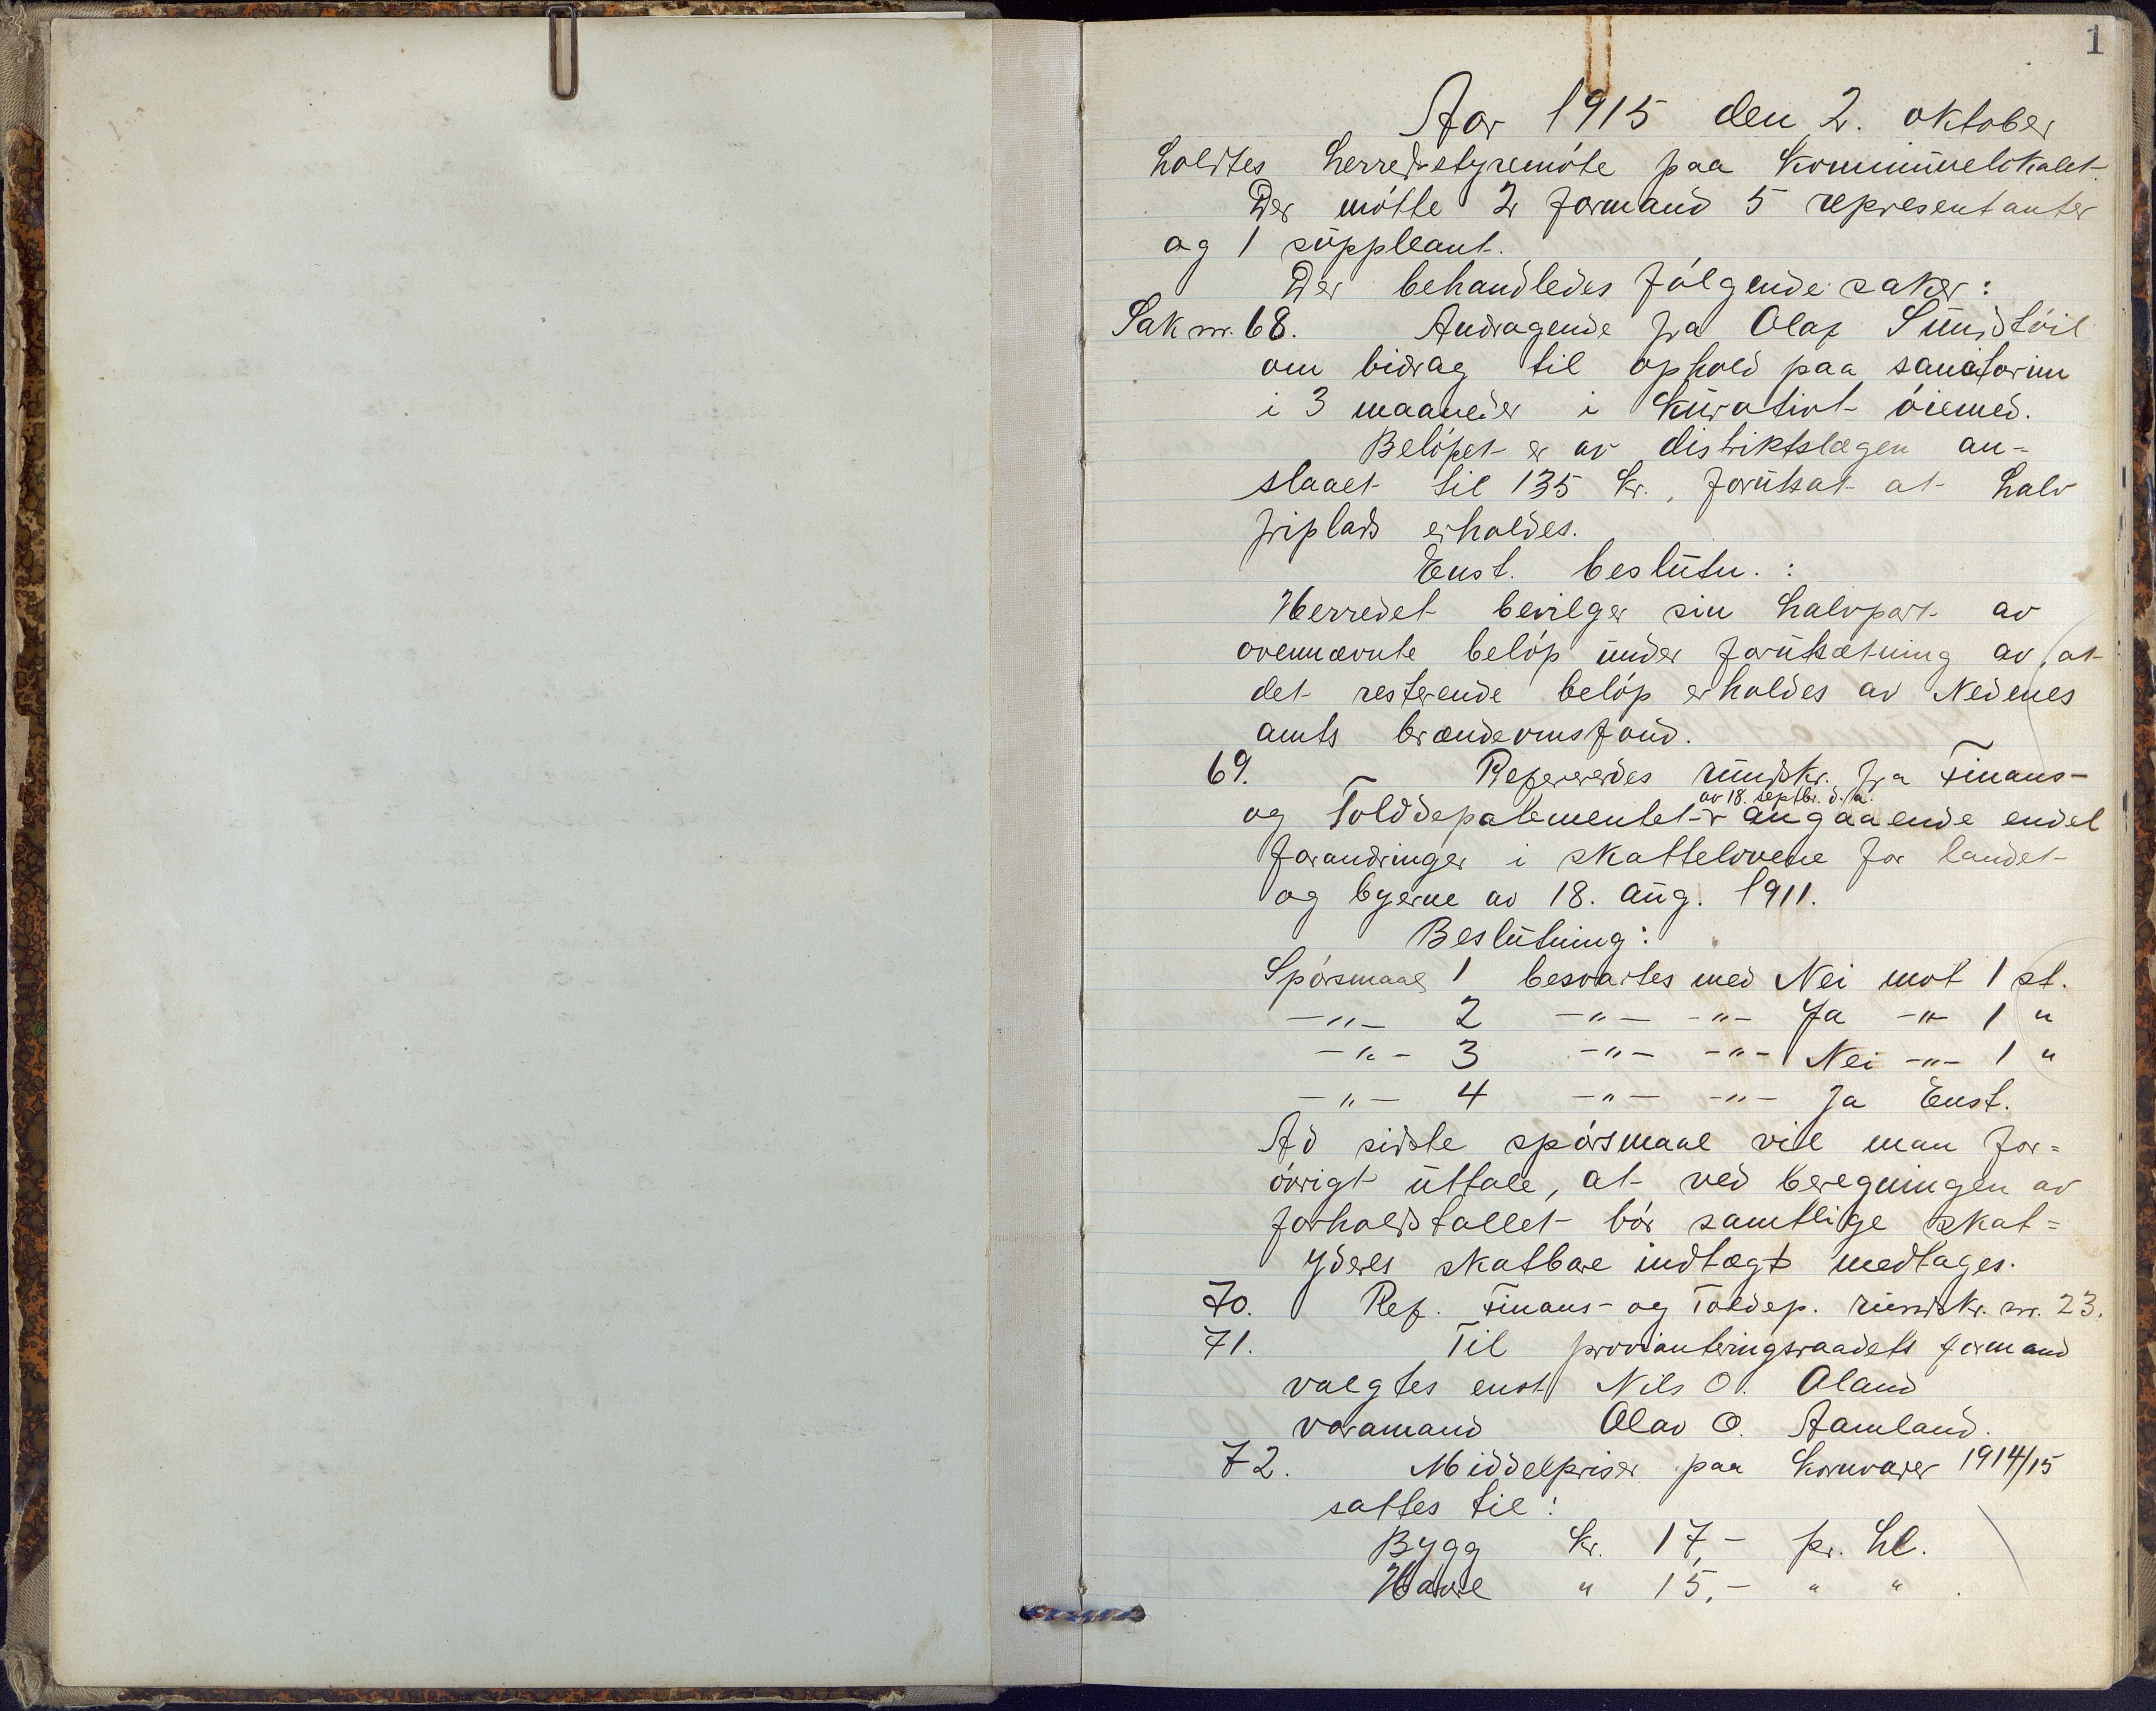 1
Aar 1915 den 2. oktober
holdtes herredsstyremóte paa kommunelokalet.
Der mótte 2 formænd 5 representanter
og 1 suppleant.
Der behandledes fólgende saker:
Sak nr. 68. Andragende fra Olaf Sundtóil
om bidrag til ophold paa sanatorium
i 3 maaneder i kurativt óiemed.
Belópet er av distriktslægen an-
slaaet til 135 kr., forutsat at halv
friplads erholdes.
Enst. beslutn.:
Herredet bevilger sin halvpart av
ovennævnte belóp under forutsætning av, at
det resterende belóp erholdes av Nedenes
amts brændevinsfond.
69. Refereredes rundskr. fra Finans-
av 18. septbr. d. a.
og Tolddepatementet angaaende endel
forandringer i skattelovene for landet
og byerne av 18. aug. 1911.
Beslutning:
Spórsmaal 1 besvartes med Nei mot 1 st.
-"- 2 -"- -"- Ja -"- 1 "
-"- 3 -"- -"- Nei -"- 1 "
-"- 4 -"- -"- Ja Enst.
Ad sidste spórsmaal vil man for-
óvrigt uttale, at ved beregningen av
forholdstallet bór samtlige skat-
yderes skatbare indtægt medtages.
70. Ref. Finans- og Toldep. rundskr. nr. 23.
71. Til provianteringsraadets formand
valgtes enst Nils O. Oland
varamand Olav O. Aamland.
72. Middelpriser paa kornvarer 1914/15
sattes til:
Bygg kr. 17,- pr. hl.
Havre " 15,- " "